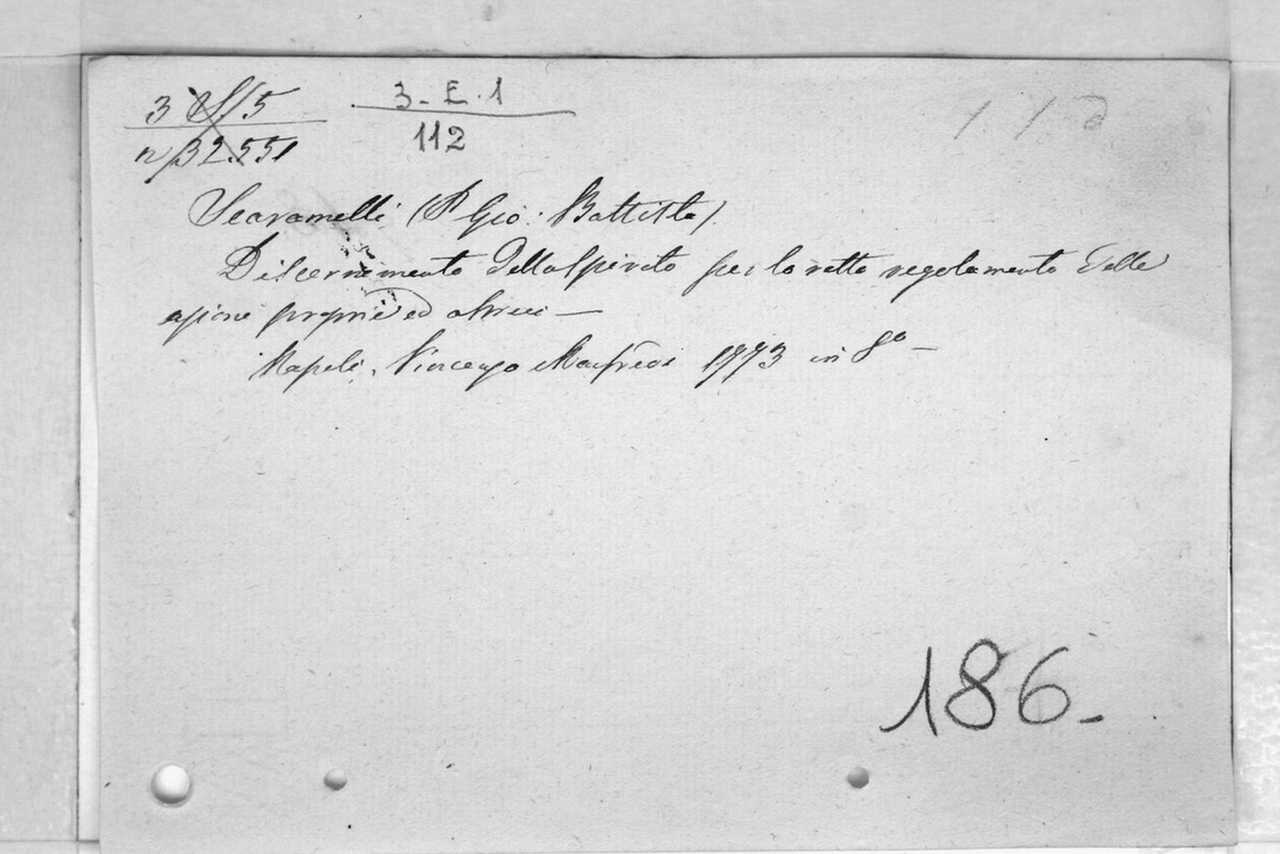 3 S/5
n 32.551
3-E.1
112
Scaramelli (P Gio: Battista).
Discernimento dello spirito per lo retto regolamento delle
azione proprie ed altrui —
Napoli, Vincenzo Manfredi 1773 in 8o —
186-